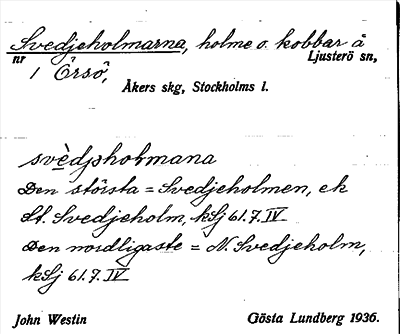 Svedjeholmarna, holme o. kobbar å
nr 1 Örsö, Ljusterö sn,
Åkers skg, Stockholms l.
svèdjshotmana
Den största = Svedjeholmen, ek
St. Svedjeholm, kSj 61.7.IV
Den nordligaste = N. Svedjeholm,
kSj 61.7.IV
John Westin Gösta Lundberg 1936.